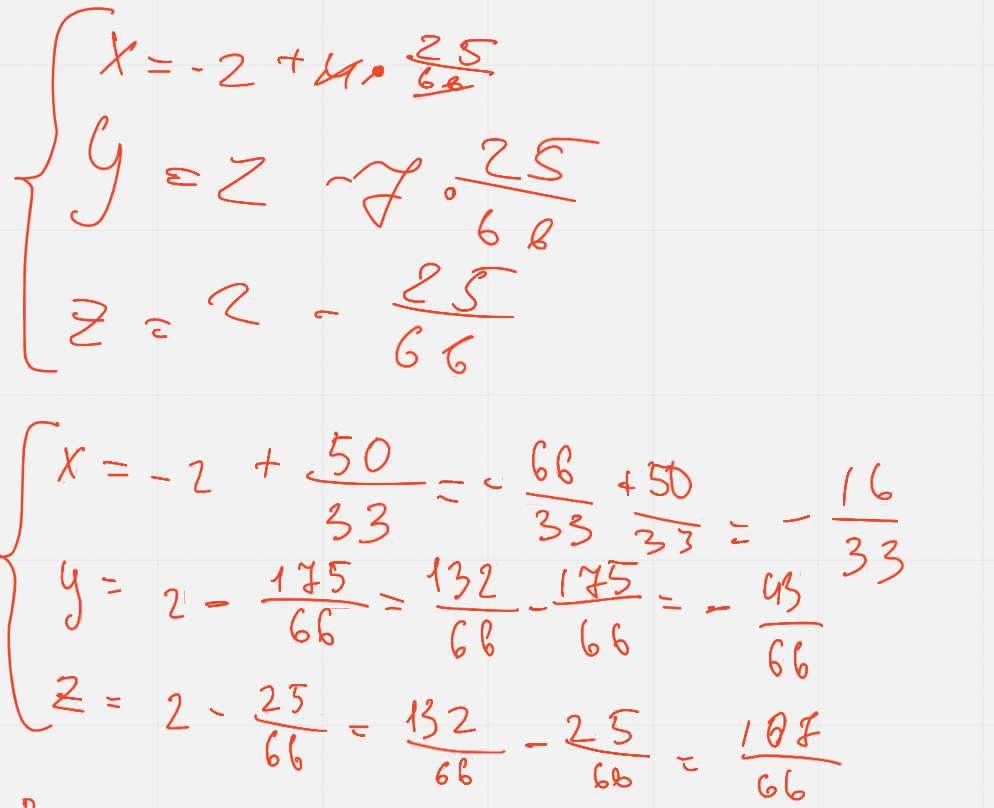 x = -2 + 4 · 25/66
y = 2 - 7 · 25/66
z = 2 - 25/66
x = -2 + 50/33 = - 66/33 + 50/33 = - 16/33
y = 2 - 175/66 = 132/66 - 175/66 = - 43/66
z = 2 - 25/66 = 132/66 - 25/66 = 107/66